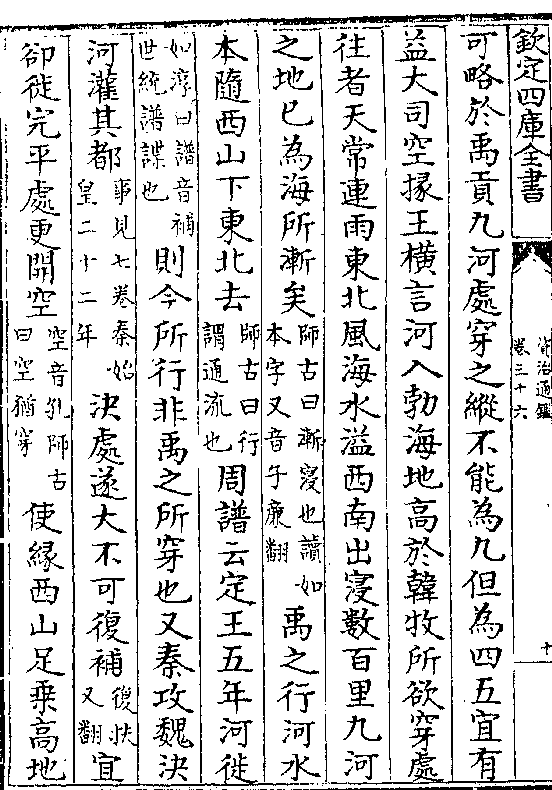 欽定四庫全書
資治通鑑
卷三十六
十
可略於禹貢九河處穿之縱不能為九但為四五宜有
益大司空掾王橫言河入勃海地高於韓牧所欲穿處
往者天常連雨東北風海水溢西南出寖數百里九河
之地已為海所漸矣師古曰漸寖也讀如本字又音子廉翻禹之行河水
本隨西山下東北去師古曰行謂通流也周譜云定王五年河徙
如淳曰譜音補世統譜諜也則今所行非禹之所穿也又秦攻魏決
河灌其都事見七卷秦始皇二十二年決處遂大不可復補復扶又翻宜
卻徙完平處更開空空音孔師古曰空猶穿使緣西山足乘高地